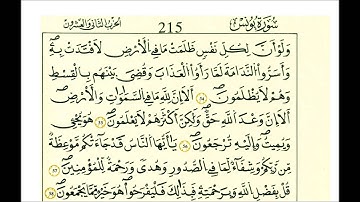 سورة يونس 215 الحزب الثاني والعشرون
وَلَوْ أَنَّ لِكُلِّ نَفْسٍ ظَلَمَتْ مَا فِي الْأَرْضِ لَافْتَدَتْ بِهِ
وَأَسَرُّوا النَّدَامَةَ لَمَّا رَأَوُا الْعَذَابَ وَقُضِيَ بَيْنَهُم بِالْقِسْطِ
وَهُمْ لَا يُظْلَمُونَ ٥٤ أَلَا إِنَّ لِلَّهِ مَا فِي السَّمَاوَاتِ وَالْأَرْضِ
أَلَا إِنَّ وَعْدَ اللَّهِ حَقٌّ وَلَٰكِنَّ أَكْثَرَهُمْ لَا يَعْلَمُونَ ٥٥ هُوَ يُحْيِي
وَيُمِيتُ وَإِلَيْهِ تُرْجَعُونَ ٥٦ يَا أَيُّهَا النَّاسُ قَدْ جَاءَتْكُم مَّوْعِظَةٌ
مِّن رَّبِّكُمْ وَشِفَاءٌ لِّمَا فِي الصُّدُورِ وَهُدًى وَرَحْمَةٌ لِّلْمُؤْمِنِينَ ٥٧
قُلْ بِفَضْلِ اللَّهِ وَبِرَحْمَتِهِ فَبِذَٰلِكَ فَلْيَفْرَحُوا هُوَ خَيْرٌ مِّمَّا يَجْمَعُونَ ٥٨